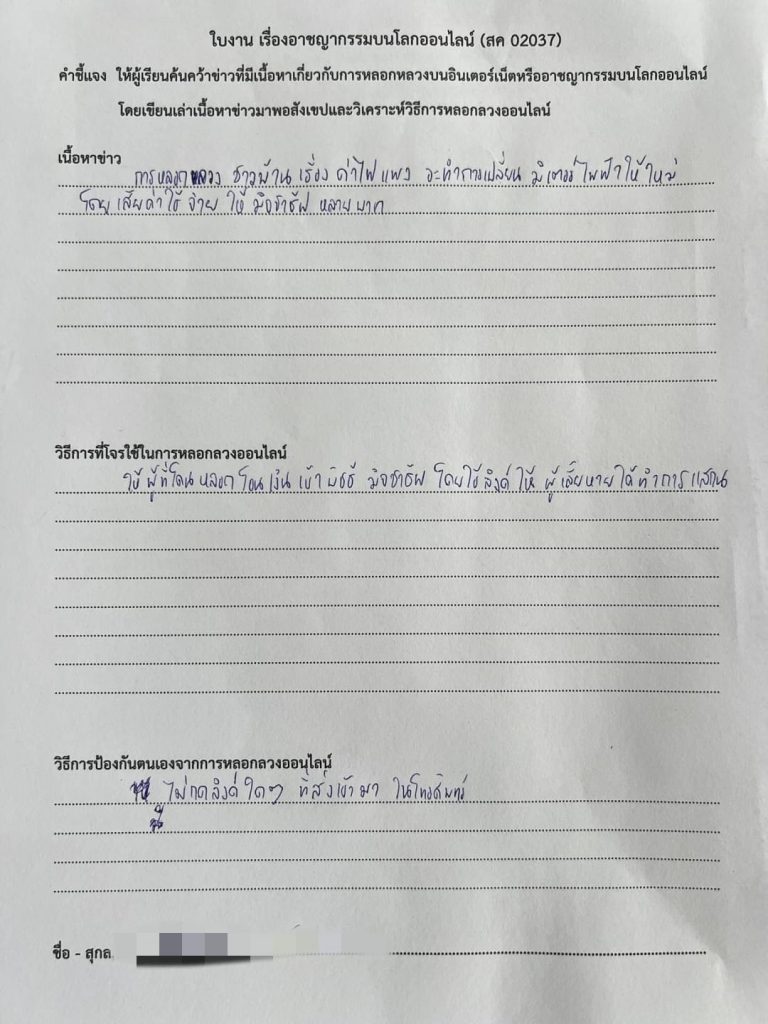 ใบงาน เรื่องอาชญากรรมบนโลกออนไลน์ (สค 02037)
คำชี้แจง ให้ผู้เรียนค้นคว้าข่าวที่มีเนื้อหาเกี่ยวกับการหลอกหลวงบนอินเตอร์เน็ตหรืออาชญากรรมบนโลกออนไลน์
โดยเขียนเล่าเนื้อหาข่าวมาพอสังเขปและวิเคราะห์วิธีการหลอกลวงออนไลน์
เนื้อหาข่าว
การหลอกหลวง ชาวบ้าน เรื่อง ค่าไฟแพง จะทำการเปลี่ยน มิเตอร์ไฟฟ้าให้ใหม่
โดย เสียค่าใช้จ่าย ให้ มิจฉาชีพ หลายบาท
วิธีการที่โจรใช้ในการหลอกลวงออนไลน์
ให้ ผู้ที่โดนหลอก โอนเงิน เข้า บัชชี มิจฉาชีพ โดยใช้ลิงค์ ให้ ผู้เสียหายได้ทำการแสกน
วิธีการป้องกันตนเองจากการหลอกลวงออนไลน์
ไม่กดลิงค์ใดๆ ที่ส่งเข้ามา ในโทรศัพทร์
ชื่อ - สุกล